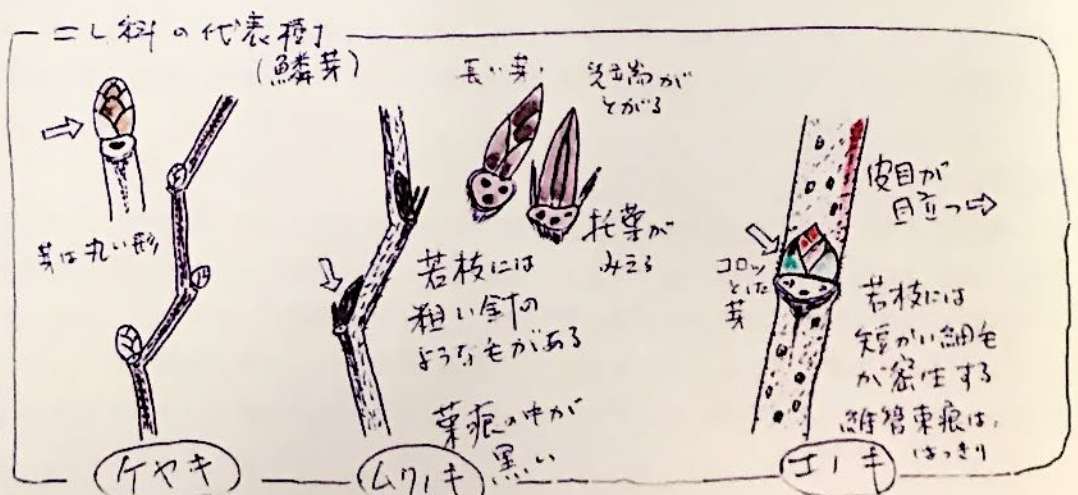 ニレ科の代表樹
(鱗芽)
芽は丸い形
ケヤキ
長い芽
先端が
とがる
托葉が
みえる
若枝には
粗い針の
ような毛がある
葉痕の中が
黒い
ムクノキ
皮目が
目立つ⇨
コロッ
とした
芽
若枝には
短かい細毛
が密生する
維管束痕は、
はっきり
エノキ